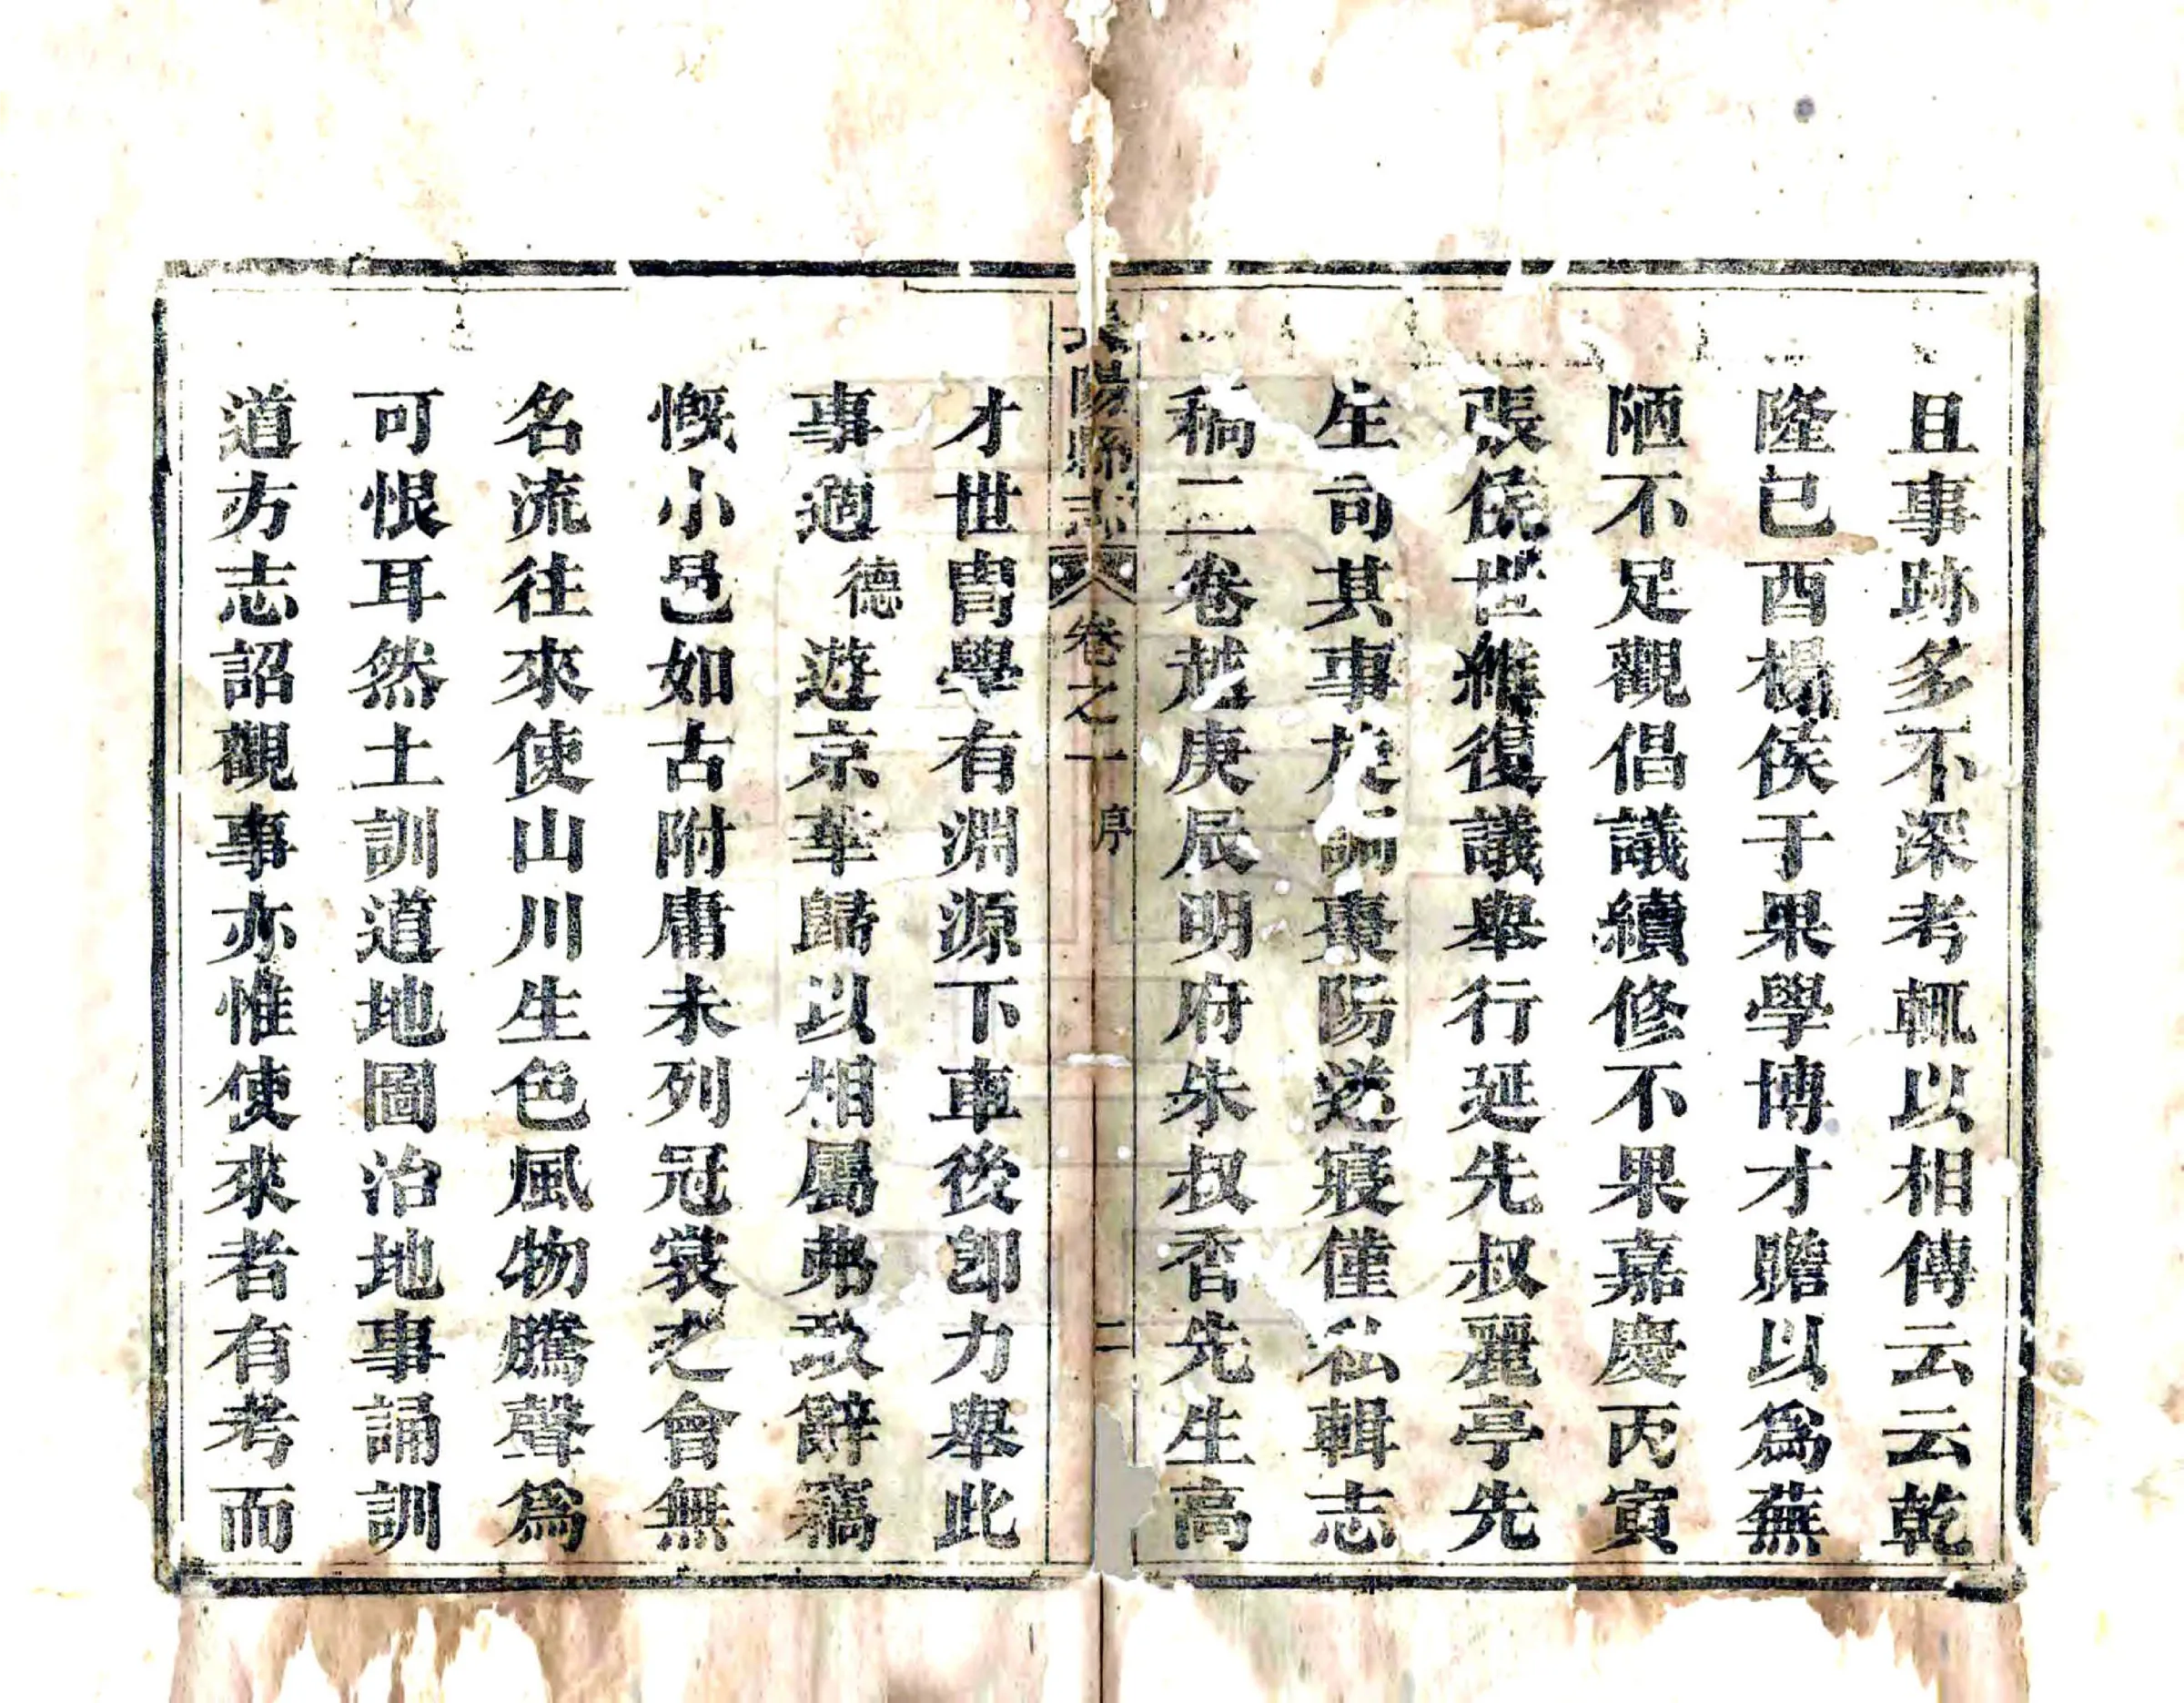 且事跡多不深考輒以相傳云云乾
隆已酉楊侯于果學博才贍以爲蕪
陋不足觀倡議續修不果嘉慶丙寅
張侯世維復議舉行延先叔麗亭先
生司其事旋調棗陽遂寢僅私輯志
稿二卷越庚辰明府朱叔香先生高
陽縣志 卷之一 序 二
才世胄學有淵源下車後卽力舉此
事適德遊京華歸以相屬弗敢辭竊
慨小邑如古附庸未列冠裳之會無
名流往來使山川生色風物騰聲爲
可恨耳然土訓道地圖治地事誦訓
道方志詔觀事亦惟使來者有考而